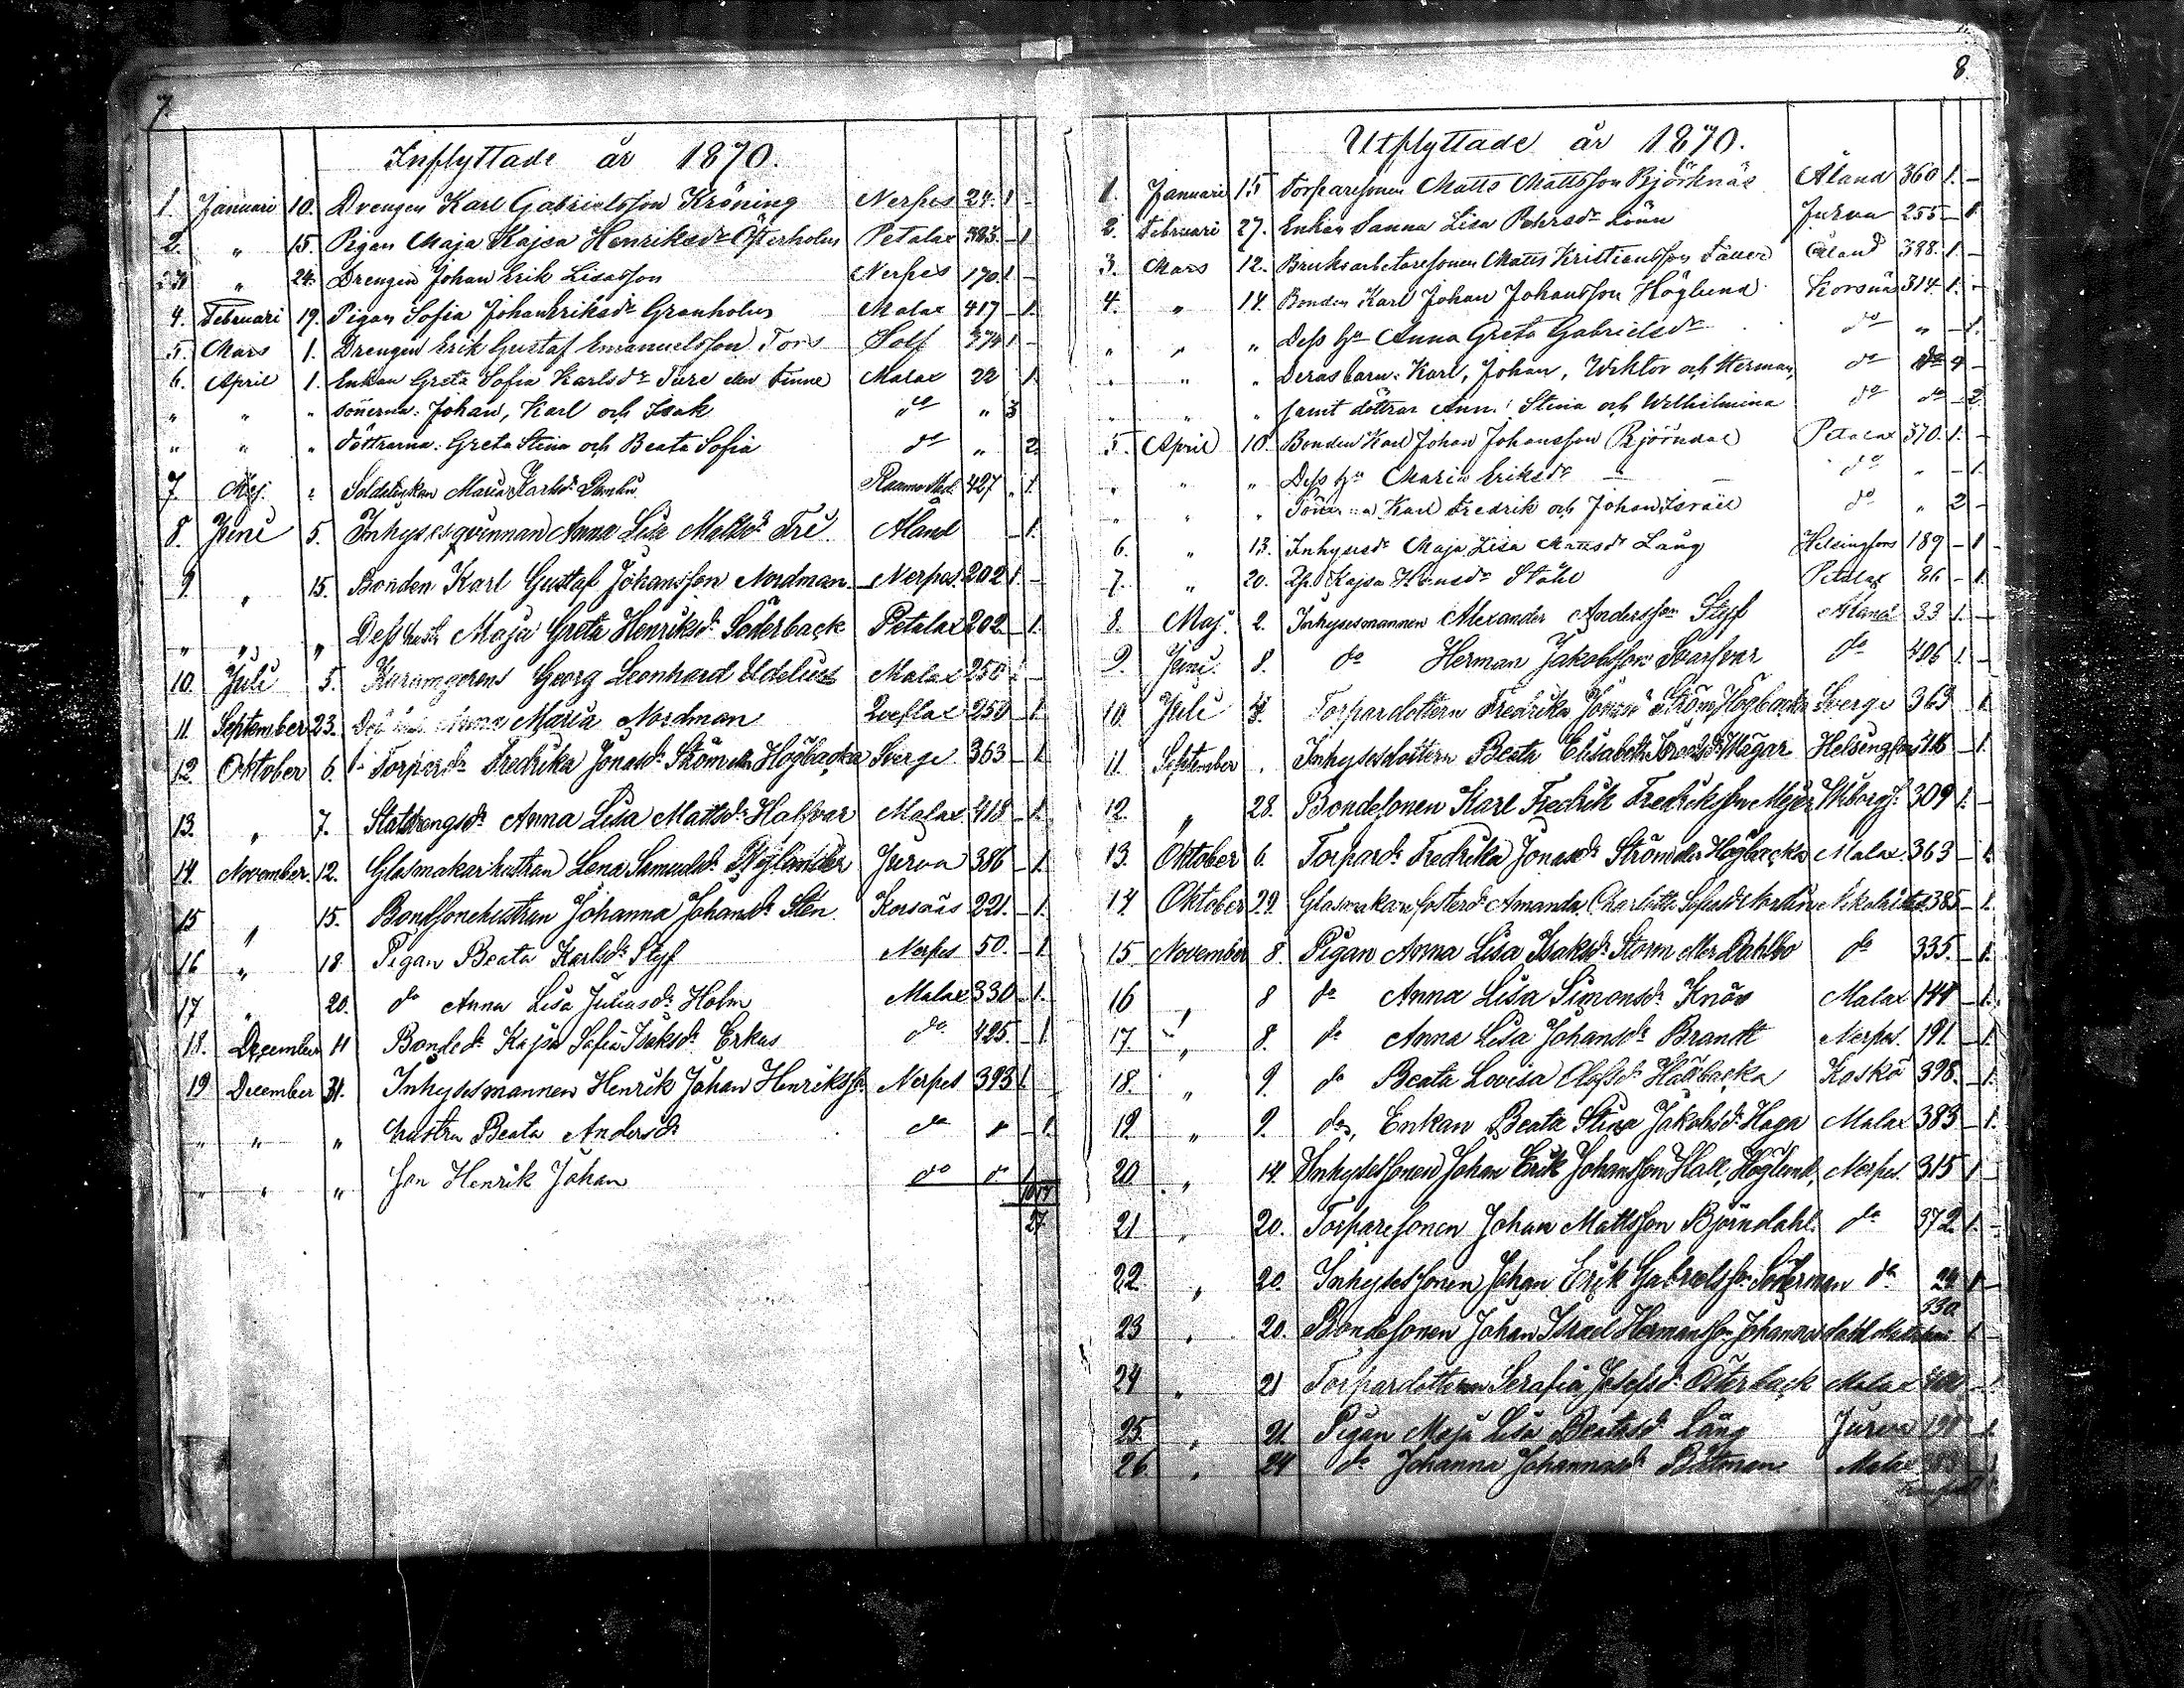 7.
Inflyttade år 1870.
1. Januari 10. Drengen Karl Gabrielsson Kröning Nerpes 24. 1 -
2. " 15. Pigan Maja Kajsa Henriksdr Österholm Petalax 383. - 1
" 24. Drengen Johan Erik Lisasson Nerpes 170. 1 -
4. Februari 19. Pigan Sofia Johan Eriksdr Granholm Malax 417 - 1.
5. Mars 1. Drengen Erik Gustaf Emanuelsson Fors Solf 374 1 -
6. April 1. Enkan Greta Sofia Karlsdr Ture eller Finne Malax 22 1.
" " " sönerna: Johan, Karl och Isak do " 3
" " " döttrarna: Greta Stina och Beata Sofia do " 2.
7 Maj. Soldatenkan Maria Karlsdr 427 - 1.
8. Juni 5. Inhysesqvinnan Anna Lisa Mattsdr Fri Åland - 1.
9. " 15. Bonden Karl Gustaf Johansson Nordman Nerpes. 202 1. -
" " " Dess hustr Maja Greta Henriksdr Söderback Petalax 202. - 1.
10. Juli 5. Georg Leonhard Malax 250 1 -
11 September 23. Anna Maria Nordman 250 - 1.
12. Oktober 6. Torpardr Fredrika Jonasdr Ström eller Högbacka Sverge 363 - 1.
13. " 7. Anna Lisa Mattsdr Halfvar Malax 418 - 1.
14. November 12. Glasmakarhustrun Lena Samuelsdr Nylander Jurva 386 - 1.
15 " 15. Bondsonehustrun Johanna Johansdr Sten Korsnäs 221. - 1.
16 " 18 Pigan Beata Karlsdr Styf Nerpes 50. - 1
17 " 20. do Anna Lisa Juliasdr Holm Malax 330 - 1.
18. December 11 Bondedr Kajsa Sofia Isaksdr Erkus do 425. - 1
19 December 31. Inhysesmannen Henrik Johan Henrikss. Nerpes 393 1. -
" " " hustru Beata Andersdr do " - 1.
" " " son Henrik Johan do do
27
8.
Utflyttade år 1870.
1. Januari 15 Torparesonen Matts Mattsson Björknäs Åland 360 1. -
2. Februari 27. Enkan Sanna Lisa Pehrsdr Linn Jurva 255 - 1.
3. Mars 12. Bruksarbetaresonen Matts Kristiansson Åland 388. 1. -
4. " 14. Bonden Karl Johan Johansson Höglund Korsnäs 314. 1. -
" " " Dess hu Anna Greta Gabrielsdr do " - 1.
" " " Deras barn: Karl, Johan, Wiktor och Herman, do do 4 -
" " " samt döttrar Anna Stina och Wilhelmina do do - 2.
5. April 10. Bonden Karl Johan Johansson Björndal Petalax 370. 1. -
" " " Dess hu Maria Eriksdr do " - 1.
" " " Sönerna Karl Fredrik och Johan Israel do " 2 -
6. " 13. Inhysesdr Maja Lisa Mattsdr Lång Helsingfors 189 - 1 -
7. " 20. Kajsa Hansdr Ståhl Petalax 86 - 1.
8. Maj. 2. Inhysesmannen Alexander Andersson Styf Åland 33 1. -
9. Juni. 8. do Herman Jakobsson do 406 1. -
10. Juli Torpardottern Fredrika Jonasdr Ström Högbacka Sverge 363 - 1.
11. September . Inhysesdottern Beata Elisabeth Hägar Helsingfors 416 - 1.
12. " 28. Bondesonen Karl Fredrik Fredriksson Wiborg. 309 1. -
13. Oktober 6. Torpardr Fredrika Jonasdr Ström eller Högbacka Malax. 363 - 1.
14. Oktober 29. Glasmakare fosterdr Amanda Charlotta 385 - 1.
15 November 8. Pigan Anna Lisa Isaksdr Storm eller Dahlbo do 335. - 1.
16 " 8 do Anna Lisa Simonsdr Knös Malax 144 - 1.
17. " 8. do Anna Lisa Johansdr Brandt Nerpes. 191. - 1.
18. " 9. do Beata Lovisa Olofsdr Kaskö 398. - 1.
19. " 9. do, Enkan Beata Stina Jakobsdr Haga Malax 383 - 1.
20 " 14. Inhysessonen Johan Erik Johansson Hall, Höglund, Nerpes. 315 1. -
21 " 20. Torparesonen Johan Mattsson Björndahl do 372 1. -
22. " 20. Inhysessonen Johan Erik Gabrielsson Söderman do 24 1 -
23 " 20. Bondesonen Johan Israel Hermansson 330 1. -
24 " 21 Torpardottern Serafia Josefsdr Österback Malax - 1
25. " 21. Pigan Maja Lisa Beatasdr Lång Jurva - 1.
26. " 24 do Johanna Johannesdr Malax